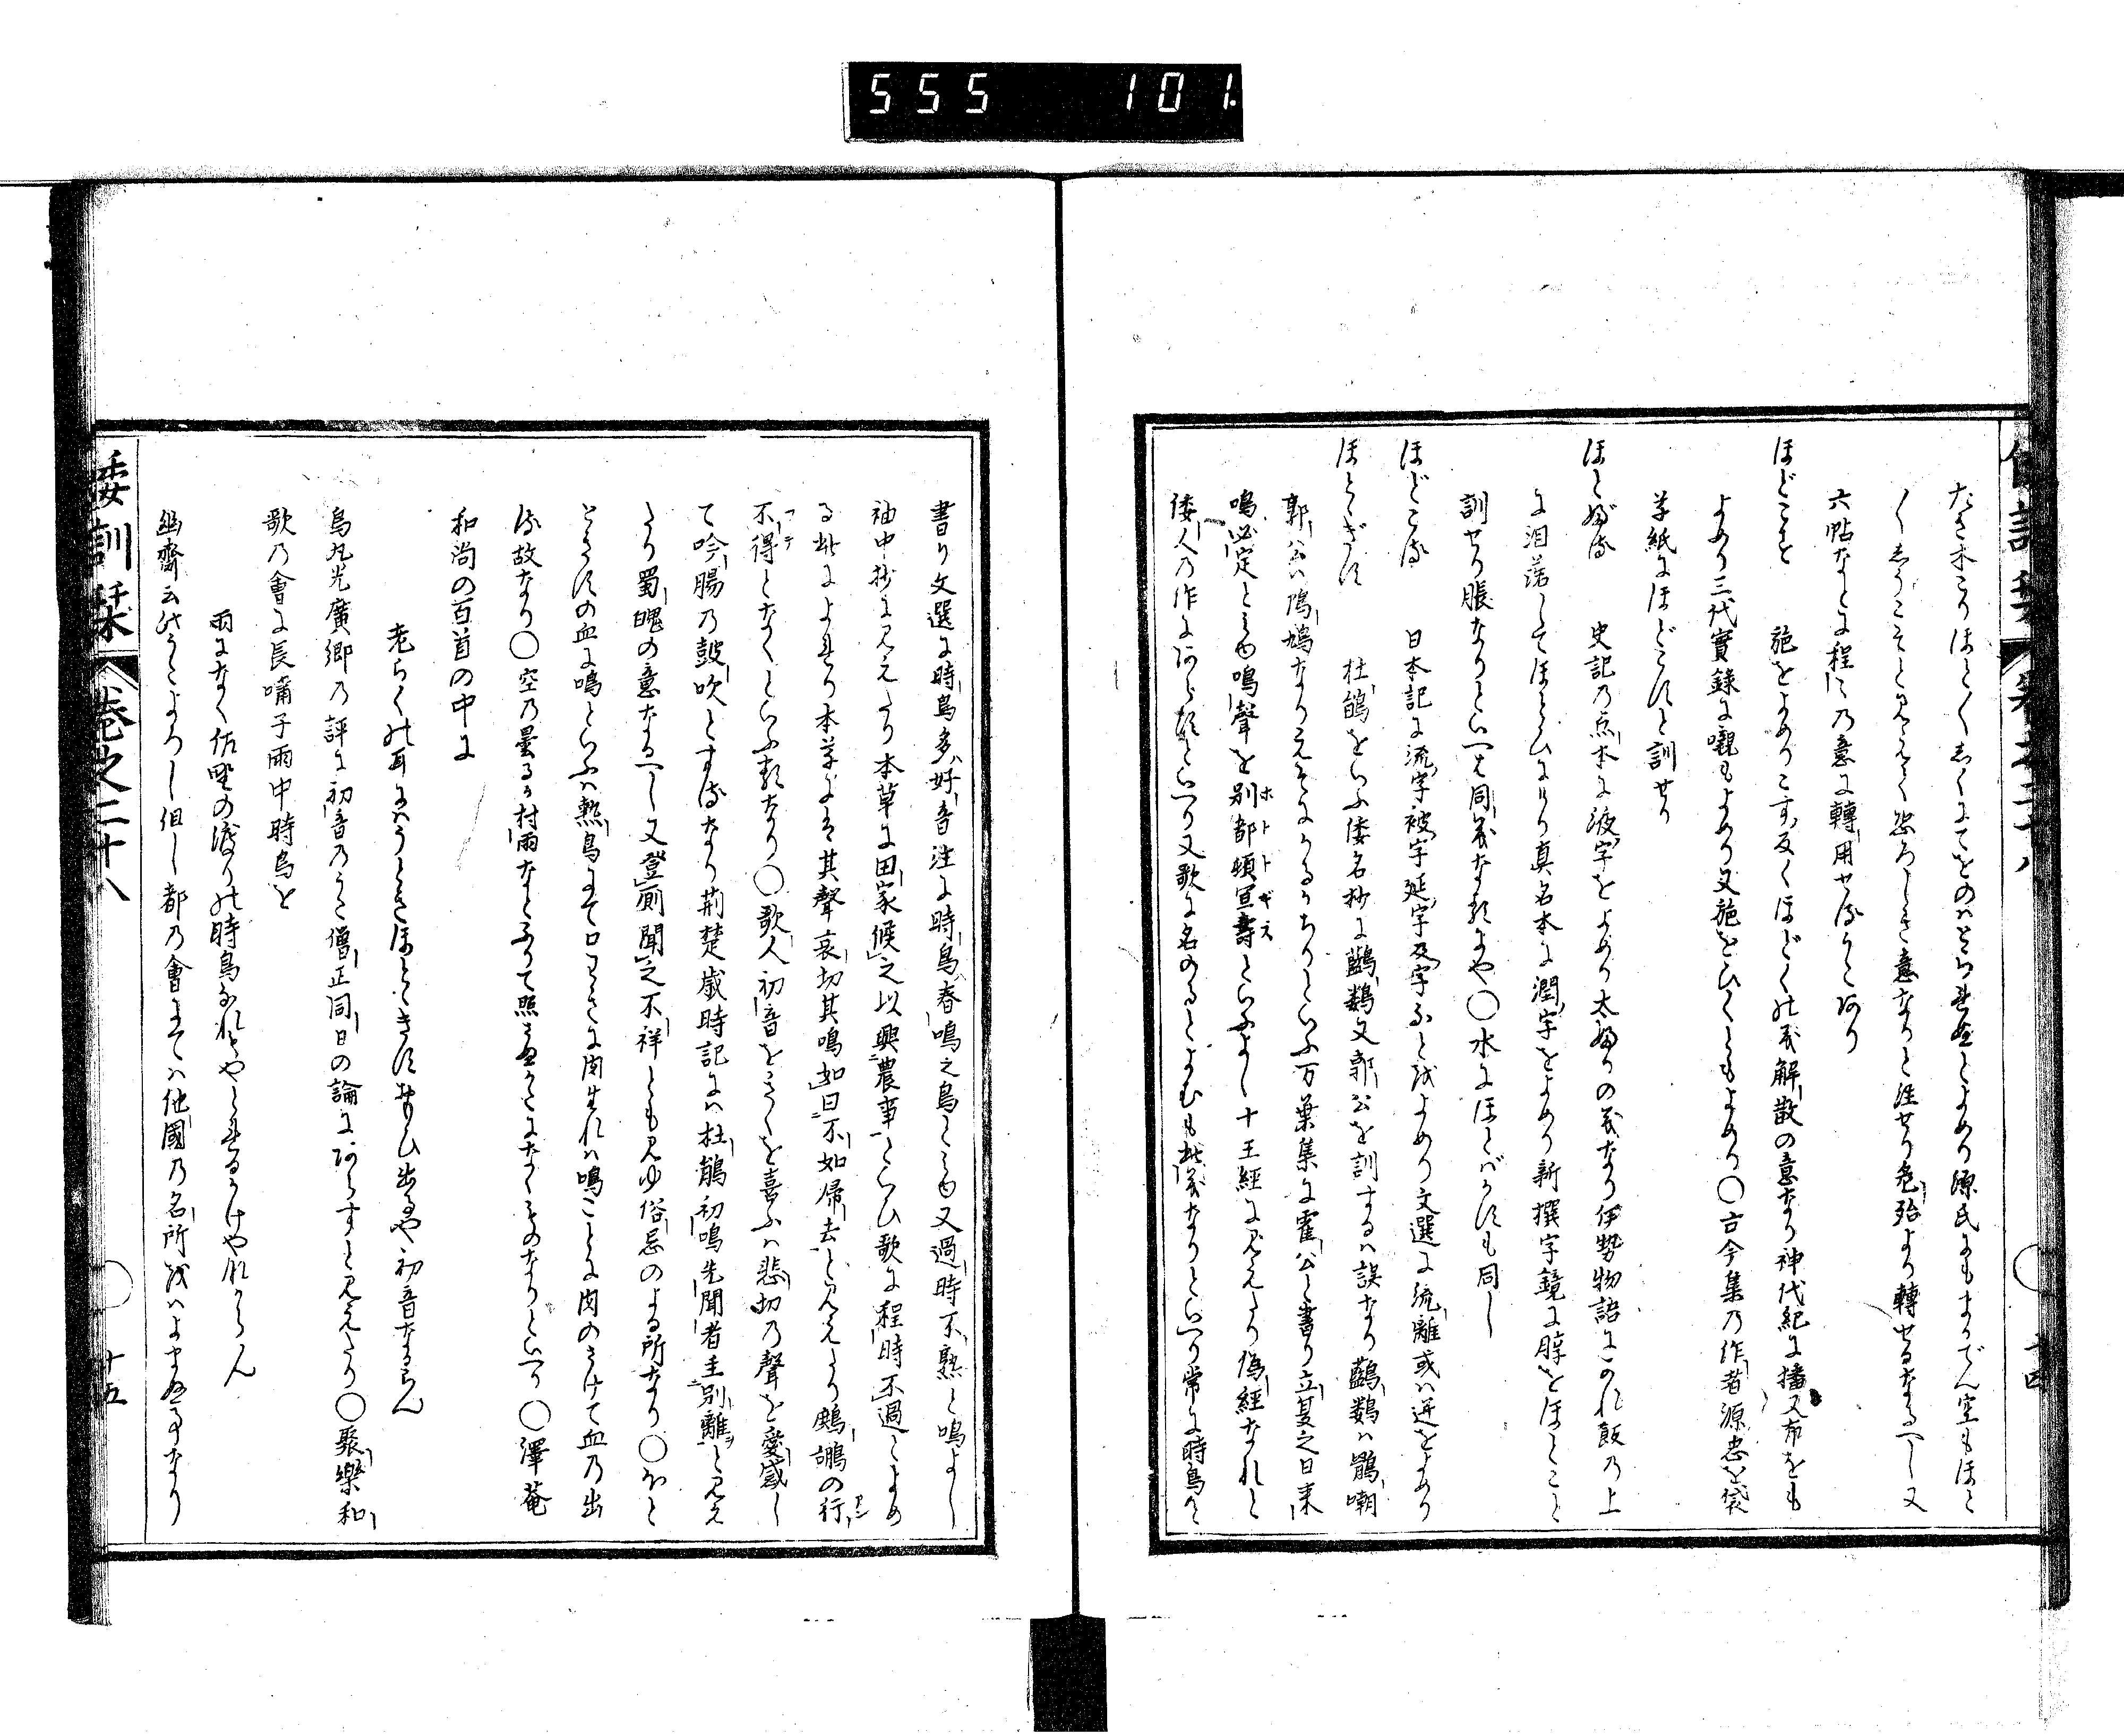 555 101.
たき木こりほと〳〵しくにてをのはとられぬとよめり源氏にもまうでん空もほと
〳〵しうこそと見えて恐ろしき意なりと注せり危殆より轉せるなるへし又
六帖なとに程〻の意に轉用せるうたあり
ほどこす 施をよめりこす反くほどくの義解散の意なり神代紀に播又布をも
よめり三代實錄に嚫もよめり又施をひくともよめり〇古今集乃作者源忠を袋
草紙にほどこすと訓せり
ほとぶる 史記乃点本に液字をよめり太ぶりの義なり伊勢物語にかれ飯乃上
に泪落してほとひにけり真名本に潤字をよめり新撰字鏡に脖をほとこと
訓せり脹なりといへは同義なるにや〇水にほとばかすも同し
ほどこる 日本記に流字被字延字及字なとをよめり文選に流離或は迸をよめり
ほとゝぎす 杜鵑をいふ倭名抄に鷛鷜又郭公を訓するは誤なり鷛鷜は鶻嘲
郭公は鳲鳩なりえそにかるかちりといふ万葉集に霍公と書り立夏之日来
鳴必定とみゆ鳴聲を別都頓宜壽といふよし十王經に見えたり偽經なれと
ホトトギス
倭人乃作にあらすといへり又歌に名のるとよむも此義なりといへり常に時鳥と
十四
書り文選に時鳥多好音注に時鳥春鳴之鳥とみゆ又過時不熟と鳴よし
袖中抄に見えたり本草に田家候之以興農事といひ歌に程時不過とよめ
る此によれり本草に又其聲哀切其鳴如曰不如歸去と見えたり鷓鴣の行
不得となくといふ類なり〇歌人初音をきくを喜ふは悲切乃聲を愛感し
て吟腸乃鼓吹とするなり荊楚歳時記には杜鵑初鳴先聞者主別離と見え
たり蜀魄の意なるへし又登厠聞之不祥とも見ゆ俗忌のよる所なり〇ほと
とぎすの血に鳴といふは熱鳥にて口わきに肉生れは鳴ことに肉のさけて血乃出
る故なり〇空乃曇るか村雨なとふりて照まぬことになくものなりといへり〇澤菴
和尚の百首の中に
老らくの耳にはうときほとゝきすおもひ出るや初音なるらん
烏丸光廣卿乃評に初音乃うた僧正同日の論にあらすと見えたり〇聚樂和
歌乃會に長嘯子雨中時鳥を
雨になく佐野の渡りの時鳥ぬれやしまけるかけやなからん
幽齋云此うたよろし但し都乃會にては他國乃名所をはよまぬ事なり
倭訓栞 巻之二十八 十五